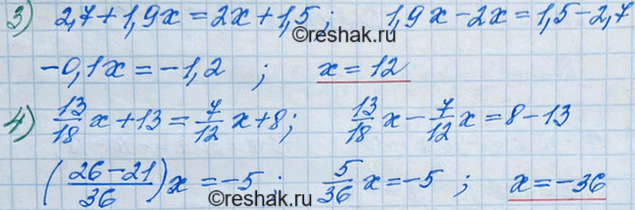 3) 2,7+1,9x=2x+1,5; 1,9x-2x=1,5-2,7
-0,1x=-1,2 ; x=12
4) 13/18 x+13=7/12 x+8; 13/18 x-7/12 x=8-13
(26-21/36)x=-5; 5/36 x=-5 ; x=-36
©reshak.ru
©reshak.ru